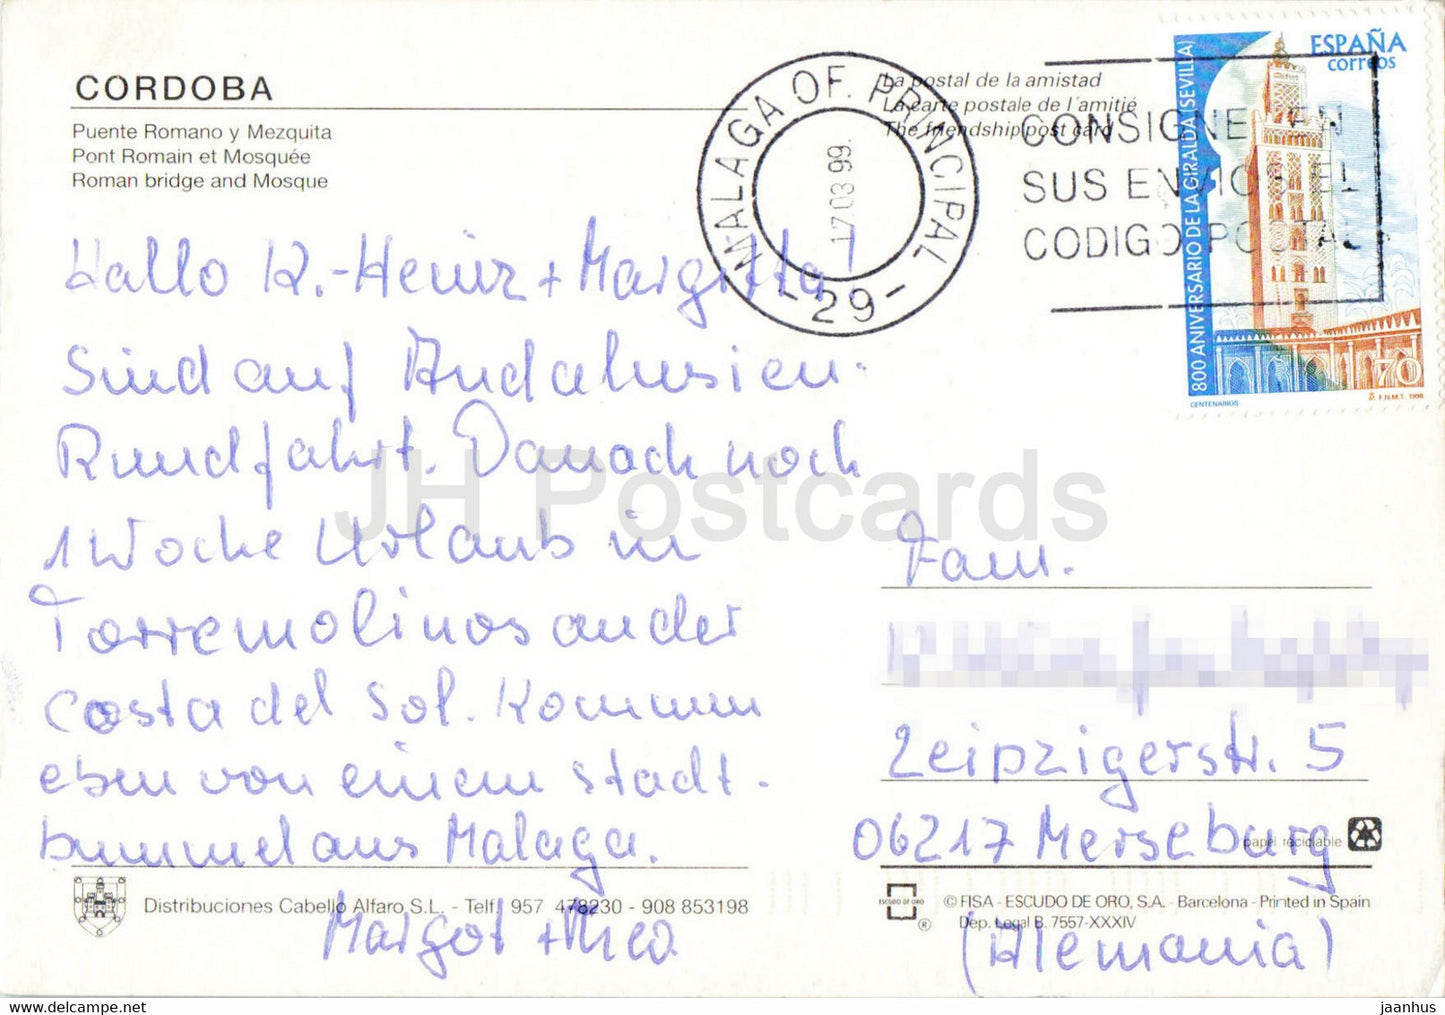 CORDOBA
Puente Romano y Mezquita
Pont Romain et Mosquée
Roman bridge and Mosque
La postal de la amistad
La carte postale de l'amitié
The friendship post card
MALAGA OF. PRINCIPAL
17 03 99.
-29-
CONSIGNE EN
SUS ENVIOS EL
CODIGO POSTAL
ESPAÑA
correos
800 ANIVERSARIO DE LA GIRALDA (SEVILLA)
70
CENTENARIOS
F.N.M.T. 1998
Hallo K.-Heinz + Margitta!
Sind auf Andalusien-
Rundfahrt. Danach noch
1 Woche Urlaub in
Torremolinos an der
Costa del Sol. Kommen
eben von einem Stadt-
bummel aus Malaga.
Margot +
Fam.
Leipzigerstr. 5
06217 Merseburg
(Alemania)
papel reciclable
Distribuciones Cabello Alfaro, S.L. - Telf. 957 478230 - 908 853198
ESCUDO DE ORO
®
© FISA - ESCUDO DE ORO, S.A. - Barcelona - Printed in Spain
Dep. Legal B. 7557-XXXIV
JH Postcards
https://www.delcampe.net
jaanhus